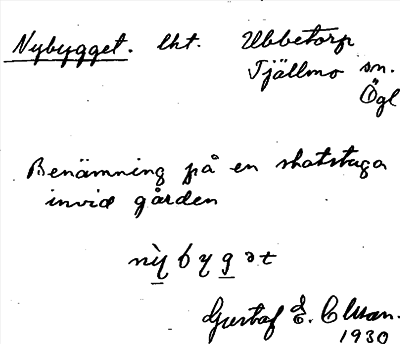 Nybygget. lht. Ubbetorp
Tjällmo sn.
Ögl
Benämning på en statstuga
invid gården
nỳbygət
Gustaf E. Olsson.
1930